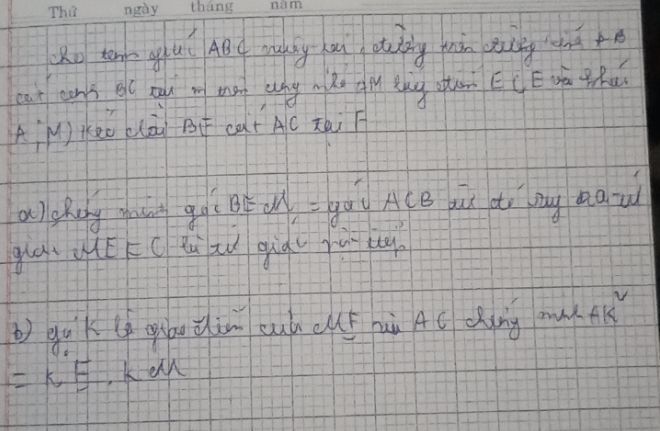 Thứ ngày tháng năm
cho tam giác ABC vuông tại, đường tròn đường kính AB
cắt cạnh BC tại m trên cung nhỏ AM lấy điểm E (E và khác
A; M) kéo dài BE cắt AC tại F
a) chứng minh góc BEM = góc ACB từ đó suy ra tứ
giác MEFC là tứ giác nội tiếp
b) gọi K là giao điểm của ME và AC chứng minh AK²
= KE.KM